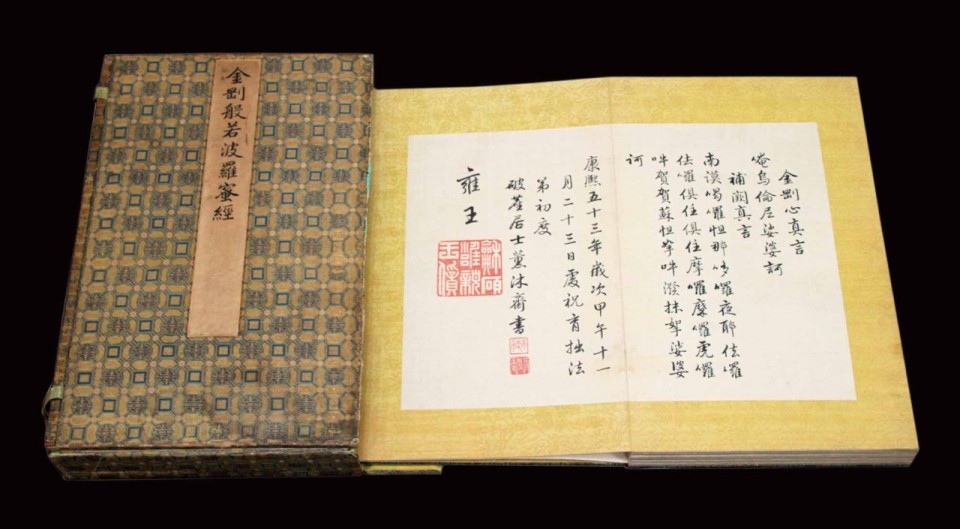 金剛般若波羅蜜經
金剛心真言
唵烏倫尼娑婆訶
補闕真言
南謨喝囉怛那哆囉夜耶佉囉
佉囉俱住俱住摩囉摩囉虎囉
吽賀賀蘇怛拏吽潑抹拏娑婆
訶
康熙五十三年歲次甲午十一
月二十三日虔祝育拙法
弟初度
破塵居士薰沐齋書
雍王
龢碩
雝親
王寶